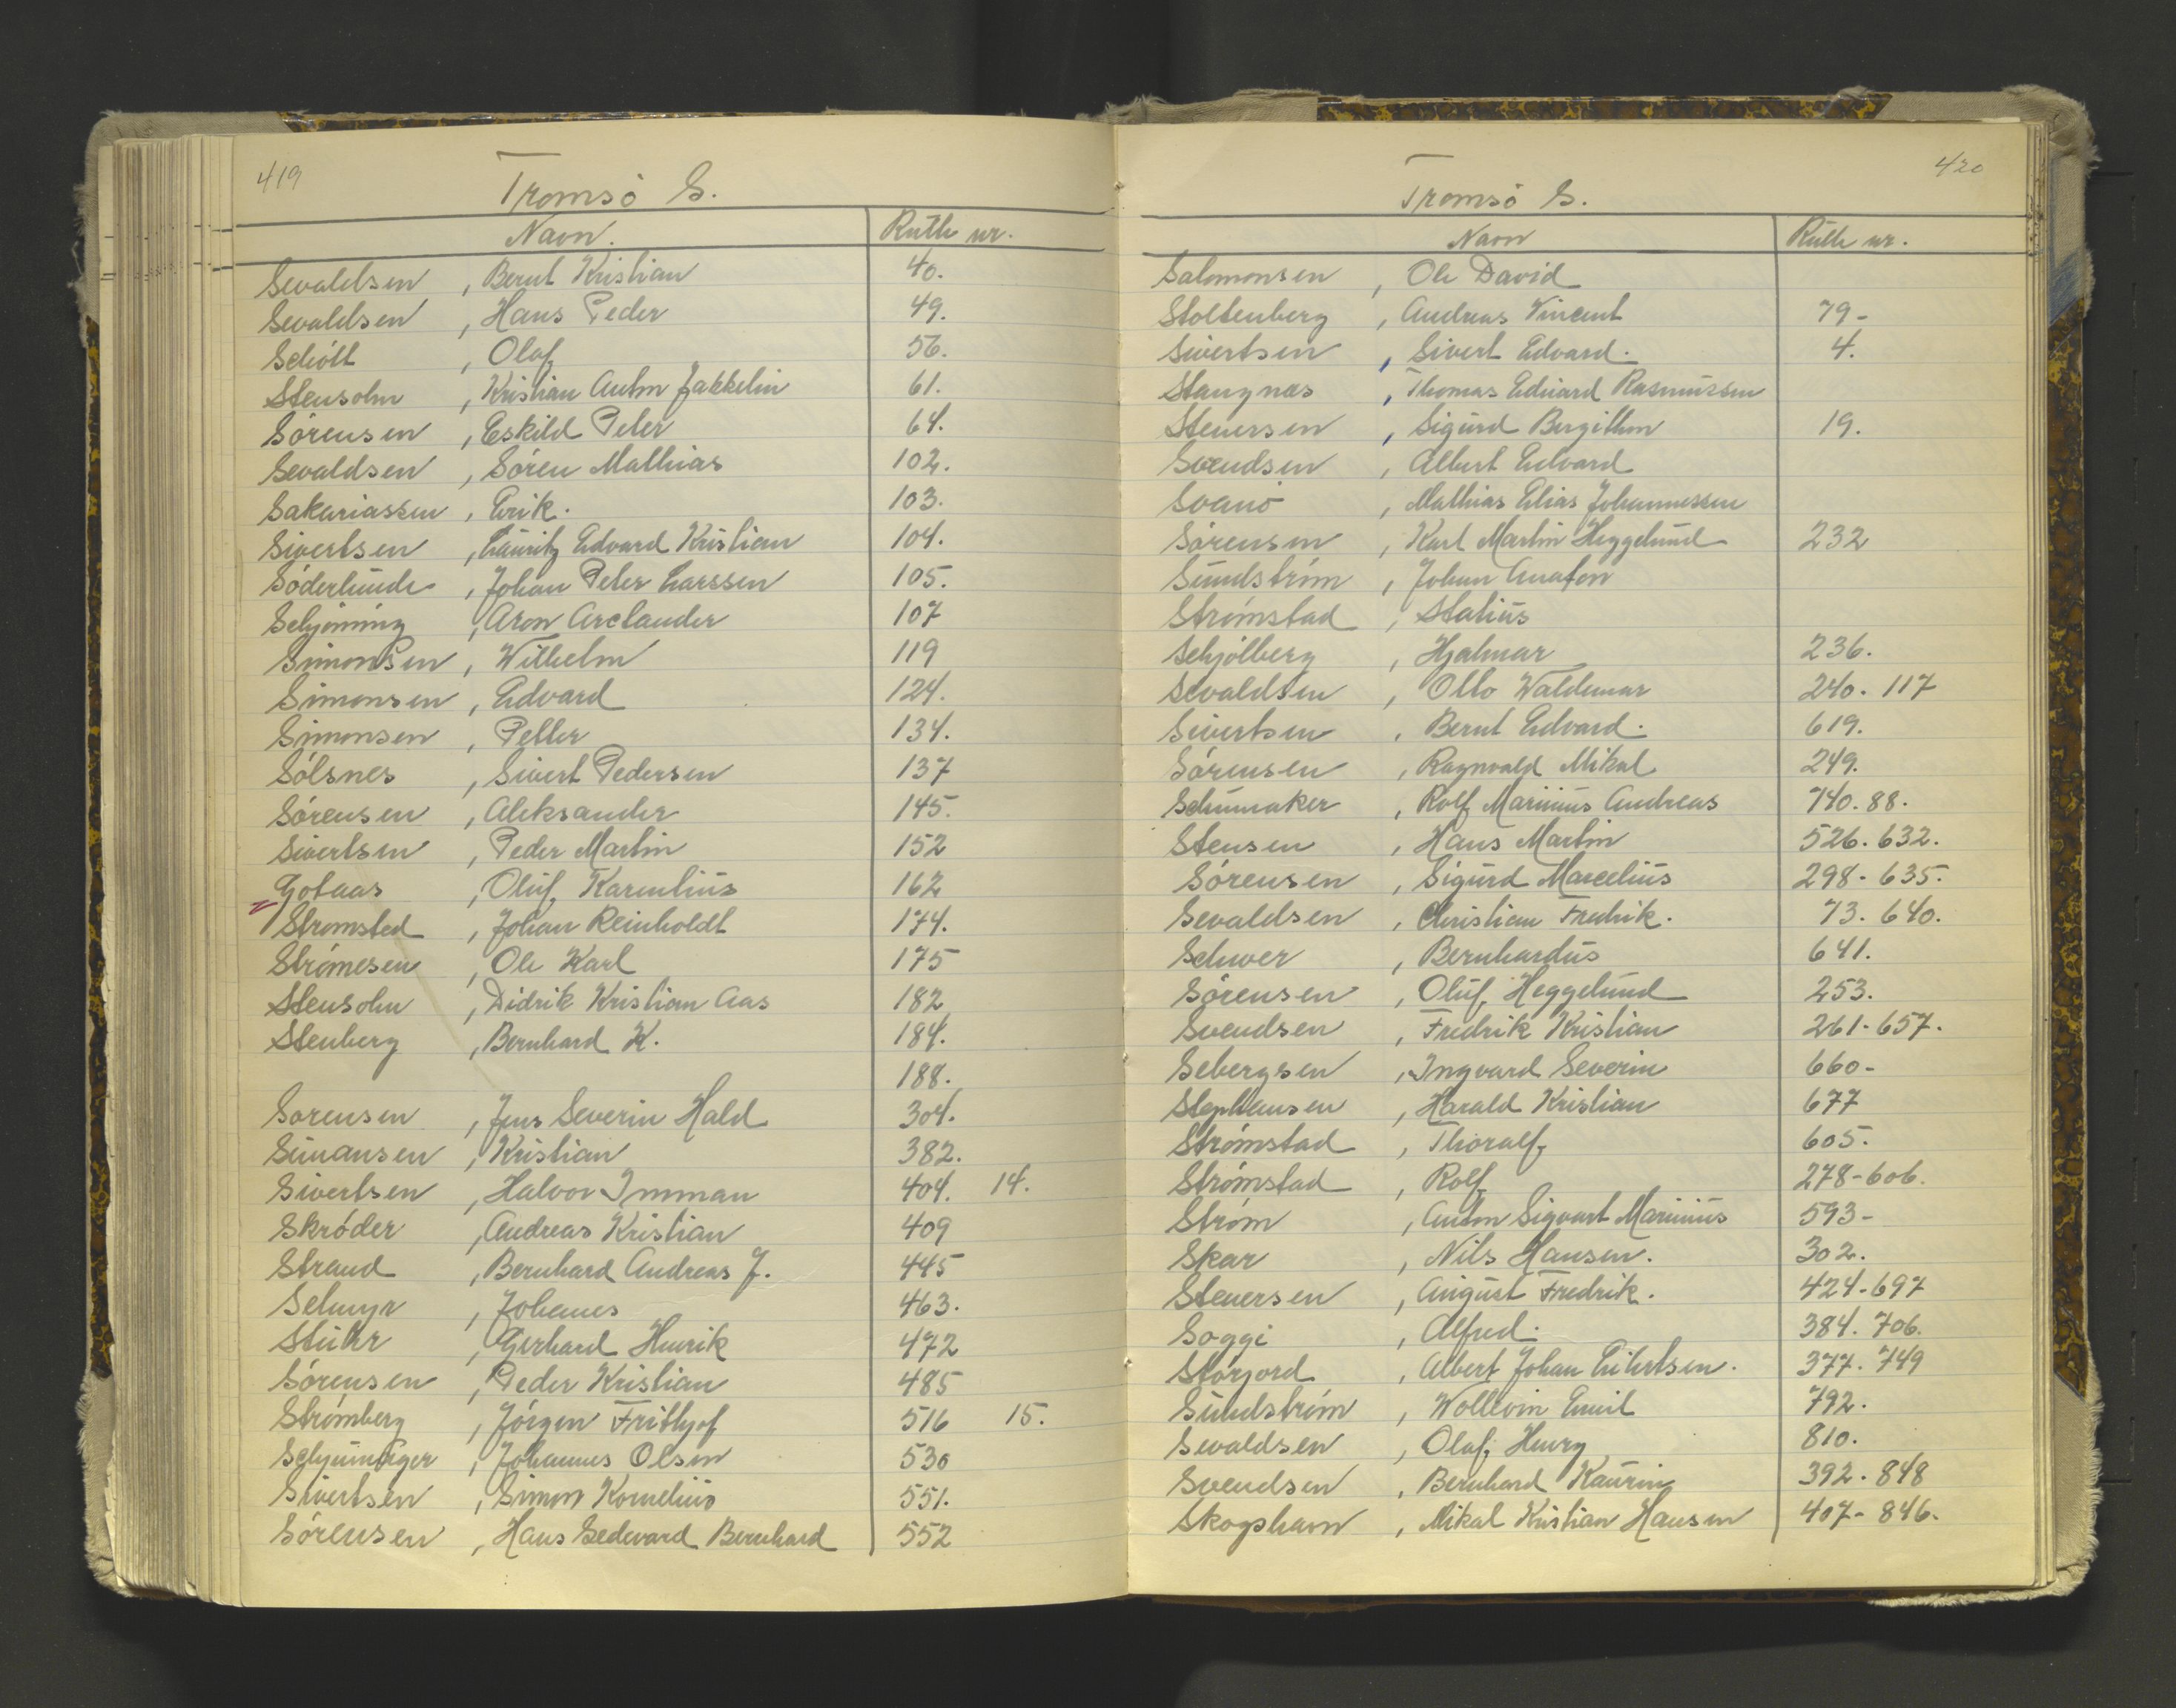 419
Tromsö S.
Navn. Rulle nr.
Sevaldsen, Bernt Kristian 40.
Sevaldsen, Hans Peder 49.
Schött, Olaf 56.
Stensohn, Kristian Anton Jakkelin 61.
Sörensen, Eskild Peter 64.
Sevaldsen, Sören Mathias 102.
Sakariassen, Erik. 103.
Sivertsen, Lauritz Edvard Kristian 104.
Söderlunde, Johan Peter Larssen 105.
Schjönning, Aron Arclander 107
Simonsen, Wilhelm 119
Simonsen, Edvard 124.
Simonsen, Petter 134.
Sólsnes, Sivert Pedersen 137
Sörensen, Aleksander 145.
Sivertsen, Peder Martin 152
Gotaas, Oluf Karentius 162
Stromsted, Johan Reinholdt 174.
Strömesen, Ole Karl 175
Stensohn, Didrik Kristian Aas 182
Stenberg, Bernhard K. 184.
188.
Sorensen, Jens Severin Hald 304.
Simansen, Kristian 382.
Sivertsen, Halvor Imman 404. 14.
Skröder, Andreas Kristian 409
Strand, Bernhard Andreas J. 445
Selmyr, Johanes 463.
Stuhr, Gerhard Henrik 472
Sörensen, Peder Kristian 485
Strömberg, Jörgen Frithjof 516 15.
Johannes Olsen 530
Sivertsen, Simon Kornelius 551.
Sörensen, Hans Sedevard Bernhard 552
420
Tromsö S.
Navn Rulle nr.
Salomonsen, Ole David
Stoltenberg, Andreas Vincent 79-
Sivertsen, Sivert Edvard. 4.
Stangnas, Thomas Edvard Rasmussen
Stenersen, Sigurd Bergithon 19.
Svendsen, Albert Edvard
Svanö, Mathias Elias Johannessen
Sörensen, Karl Martin Heggelund 232
Sundström, Johan Anafon
Strömstad, Statius
Schjölberg, Hjalmar 236.
Sevaldsen, Otto Waldemar 240. 117
Sivertsen, Bernt Edvard. 619.
Sörensen, Ragnvald Mikal 249.
Schumaker, Rolf Marinius Andreas 740. 88.
Stensen, Hans Martin 526. 632.
Sörensen, Sigurd Marcelius 298- 635.
Sevaldsen, Christian Fredrik. 73. 640.
Schwer, Bernhardus 641.
Sörensen, Oluf Heggelund 253.
Svendsen, Fredrik Kristian 261- 657.
Sebergsen, Ingvard Severin 660-
Stephansen, Harald Kristian 677
Strömstad, Thoralf 605.
Strömstad, Rolf 278-606.
Ström, Anton Sigvart Marinius 593-
Skar, Nils Hansen. 302.
Stenersen, August Fredrik. 424-697
Soggi, Alfred. 384. 706.
Storjord, Albert Johan Eilertsen. 377. 749
Sundström, Wollevin Emil 792.
Sevaldsen, Olaf Henry 810.
Svendsen, Bernhard Kaurin 392. 848
Skogshavn, Mikal Kristian Hansen 407- 846.